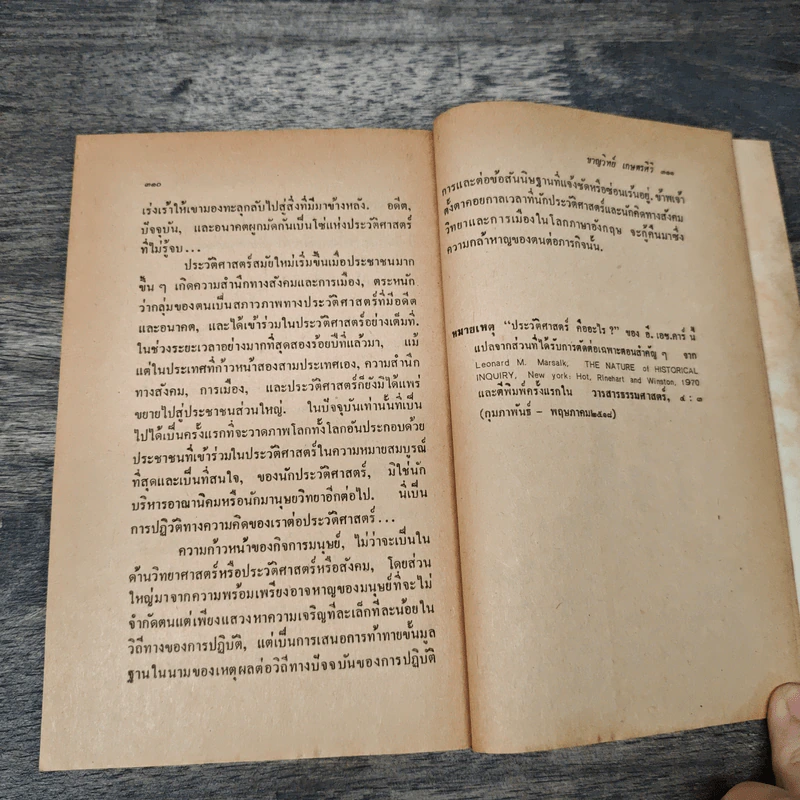 ๓๑๐
เร่งเร้าให้เขามองทะลุกลับไปสู่สิ่งที่มีมาข้างหลัง. อดีต,
ปัจจุบัน, และอนาคตผูกมัดกันเป็นโซ่แห่งประวัติศาสตร์
ที่ไม่รู้จบ...
ประวัติศาสตร์สมัยใหม่เริ่มขึ้นเมื่อประชาชนมาก
ขึ้น ๆ เกิดความสำนึกทางสังคมและการเมือง, ตระหนัก
ว่ากลุ่มของตนเป็นสภาวภาพทางประวัติศาสตร์ที่มีอดีต
และอนาคต, และได้เข้าร่วมในประวัติศาสตร์อย่างเต็มที่.
ในช่วงระยะเวลาอย่างมากที่สุดสองร้อยปีที่แล้วมา, แม้
แต่ในประเทศที่ก้าวหน้าสองสามประเทศเอง, ความสำนึก
ทางสังคม, การเมือง, และประวัติศาสตร์ก็ยังมิได้แพร่
ขยายไปสู่ประชาชนส่วนใหญ่. ในปัจจุบันเท่านั้นที่เป็น
ไปได้เป็นครั้งแรกที่จะวาดภาพโลกทั้งโลกอันประกอบด้วย
ประชาชนที่เข้าร่วมในประวัติศาสตร์ในความหมายสมบูรณ์
ที่สุดและเป็นที่สนใจ, ของนักประวัติศาสตร์, มิใช่นัก
บริหารอาณานิคมหรือนักมานุษยวิทยาอีกต่อไป. นี่เป็น
การปฏิวัติทางความคิดของเราต่อประวัติศาสตร์...
ความก้าวหน้าของกิจการมนุษย์, ไม่ว่าจะเป็นใน
ด้านวิทยาศาสตร์หรือประวัติศาสตร์หรือสังคม, โดยส่วน
ใหญ่มาจากความพร้อมเพรียงอาจหาญของมนุษย์ที่จะไม่
จำกัดตนแต่เพียงแสวงหาความเจริญทีละเล็กทีละน้อยใน
วิถีทางของการปฏิบัติ, แต่เป็นการเสนอการท้าทายขั้นมูล
ฐานในนามของเหตุผลต่อวิถีทางปัจจุบันของการปฏิบัติ
ชาญวิทย์ เกษตรศิริ ๓๑๑
การและต่อข้อสันนิษฐานที่แจ้งชัดหรือซ่อนเร้นอยู่. ข้าพเจ้า
ตั้งตาคอยกาลเวลาที่นักประวัติศาสตร์และนักคิดทางสังคม
วิทยาและการเมืองในโลกภาษาอังกฤษ จะกู้คืนมาซึ่ง
ความกล้าหาญของตนต่อภารกิจนั้น.
หมายเหตุ "ประวัติศาสตร์ คืออะไร ?" ของ อี. เอช.คาร์ นี้
แปลจากส่วนที่ได้รับการตัดต่อเฉพาะตอนสำคัญ ๆ จาก
Leonard M. Marsalk, THE NATURE of HISTORICAL
INQUIRY, New york: Hot, Rinehart and Winston, 1970
และตีพิมพ์ครั้งแรกใน วารสารธรรมศาสตร์, ๔ : ๓
(กุมภาพันธ์ – พฤษภาคม๒๕๑๘)